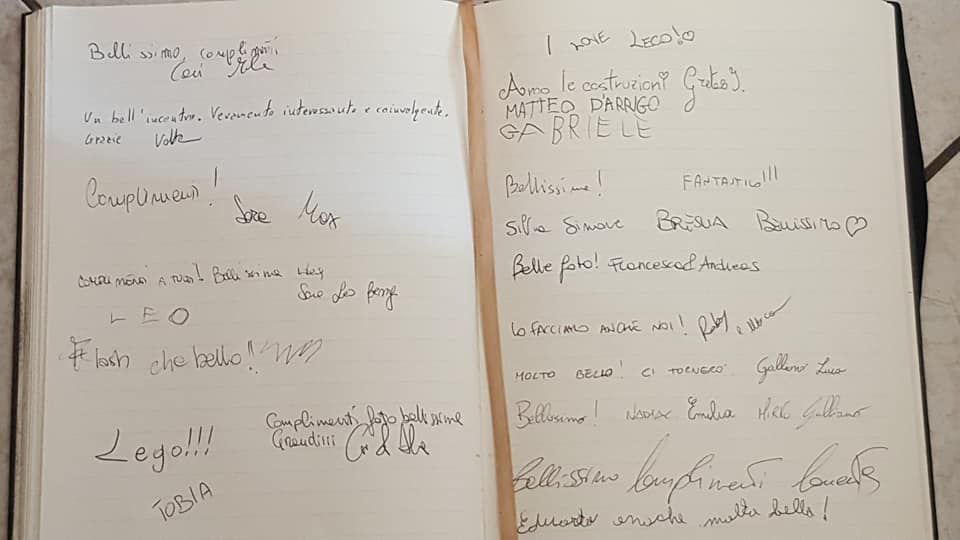 Bellissimo, complimenti
Un bell'incontro. Veramente interessante e coinvolgente.
Grazie
Complimenti!
Sara Max
COMPLIMENTI A TUTTI! Bellissima
Sara Leo
LEO
Flash che bello!!
Complimenti foto bellissime
Grandiiii
Lego!!!
TOBIA
I LOVE LEGO!♡
Amo le costruzioni
MATTEO D'ARRIGO
GABRIELE
Bellissime! FANTASTICO!!!
Silvia Simone BRESCIA Bellissimo ♡
Belle foto! Francesca & Andreas
LO FACCIAMO ANCHE NOI!
MOLTO BELLO! CI TORNERÒ. Galliano Luca
Bellissimo! Emilia Galliano
Bellissimo Complimenti
molto bello!